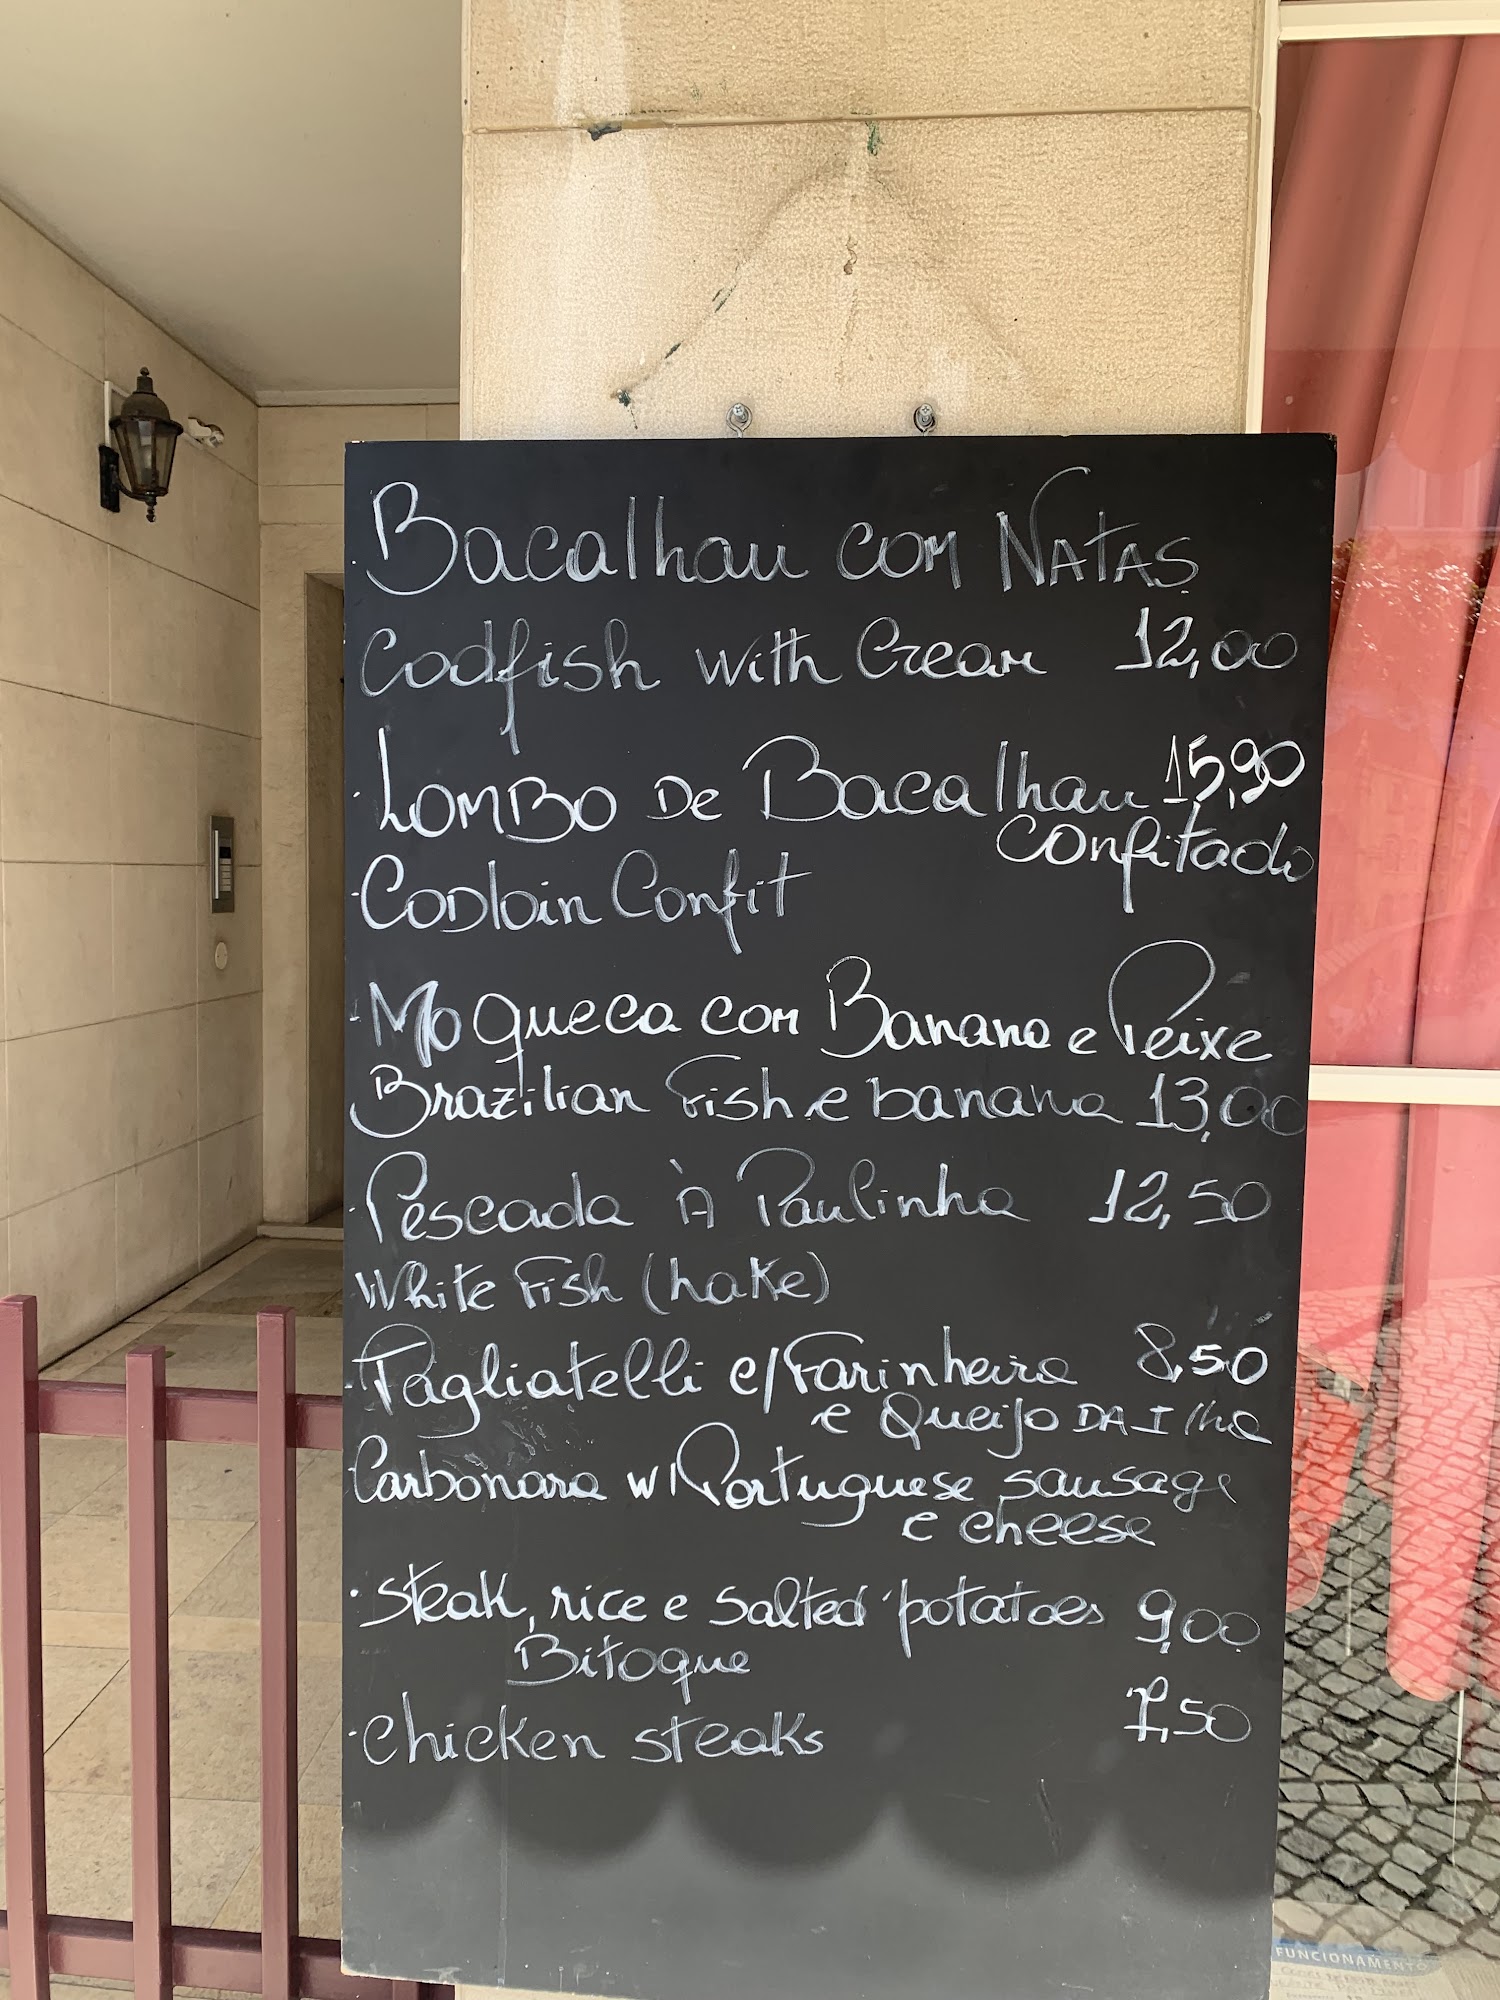 Bacalhau com NATAS
Codfish with Cream 12,00
LOMBO DE Bacalhau 15,90
confitado
CODloin Confit
Moqueca com Banana e Peixe
Brazilian Fish e banana 13,00
Pescada À Paulinha 12,50
White Fish (hake)
Tagliatelli c/Farinheira 8,50
e Queijo DA Ilha
Carbonara w/Portuguese sausage
e cheese
steak, rice e salted potatoes 9,00
Bitoque
chicken steaks 7,50
FUNCIONAMENTO